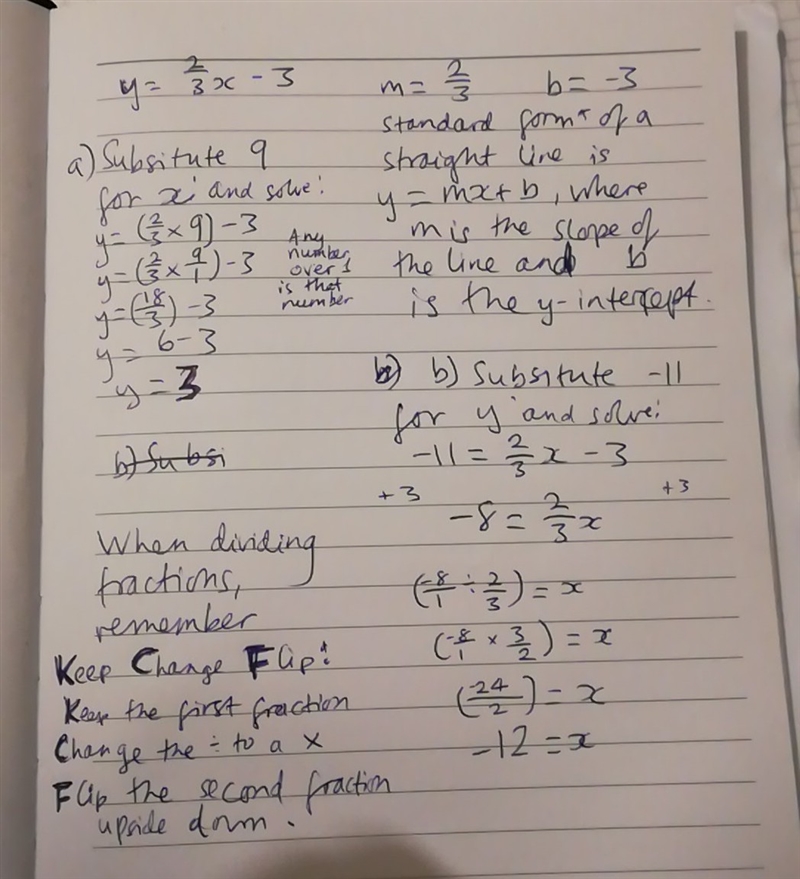 y = 2/3 x - 3
m = 2/3 b = -3
standard form of a
straight line is
y = mx + b, where
m is the slope of
the line and b
is the y-intercept.
a) Subsitute 9
for x and solve:
y = (2/3 × 9) - 3
y = (2/3 × 9/1) - 3
y = (18/3) - 3
y = 6 - 3
y = 3
Any
number
over 1
is that
number
b) Subsi
b) Subsitute -11
for y and solve:
-11 = 2/3 x - 3
+3 +3
-8 = 2/3 x
(-8/1 ÷ 2/3) = x
(-8/1 × 3/2) = x
(-24/2) = x
-12 = x
When dividing
fractions,
remember
Keep Change Flip:
Keep the first fraction
Change the ÷ to a ×
Flip the second fraction
upside down.